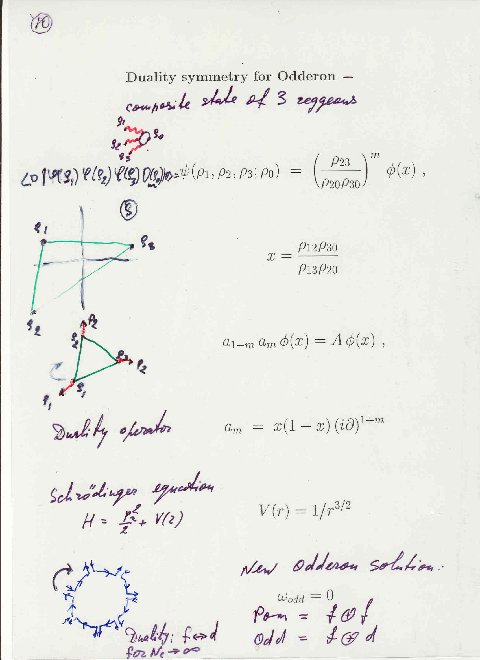 10
Duality symmetry for Odderon –
composite state of 3 reggeons
ρ1
ρ2 ρ0
ρ3
<0|φ(ρ1) φ(ρ2) φ(ρ3) O_m(ρ0)|0> = ψ(ρ1, ρ2, ρ3; ρ0) = (ρ23 / ρ20ρ30)^m φ(x) ,
ρ
ρ1 ρ3
x = ρ12ρ30 / ρ13ρ20
ρ2
p2
ρ2
a1−m am φ(x) = A φ(x) ,
ρ1
p1
Duality operator
am = x(1 − x) (i∂)^1−m
Schrödinger equation
H = p²/2 + V(r)
V(r) = 1/r^3/2
New Odderon solution:
ωodd = 0
Pom = f ⊕ f
Odd = f ⊕ d
Duality: f↔d
for Nc → ∞